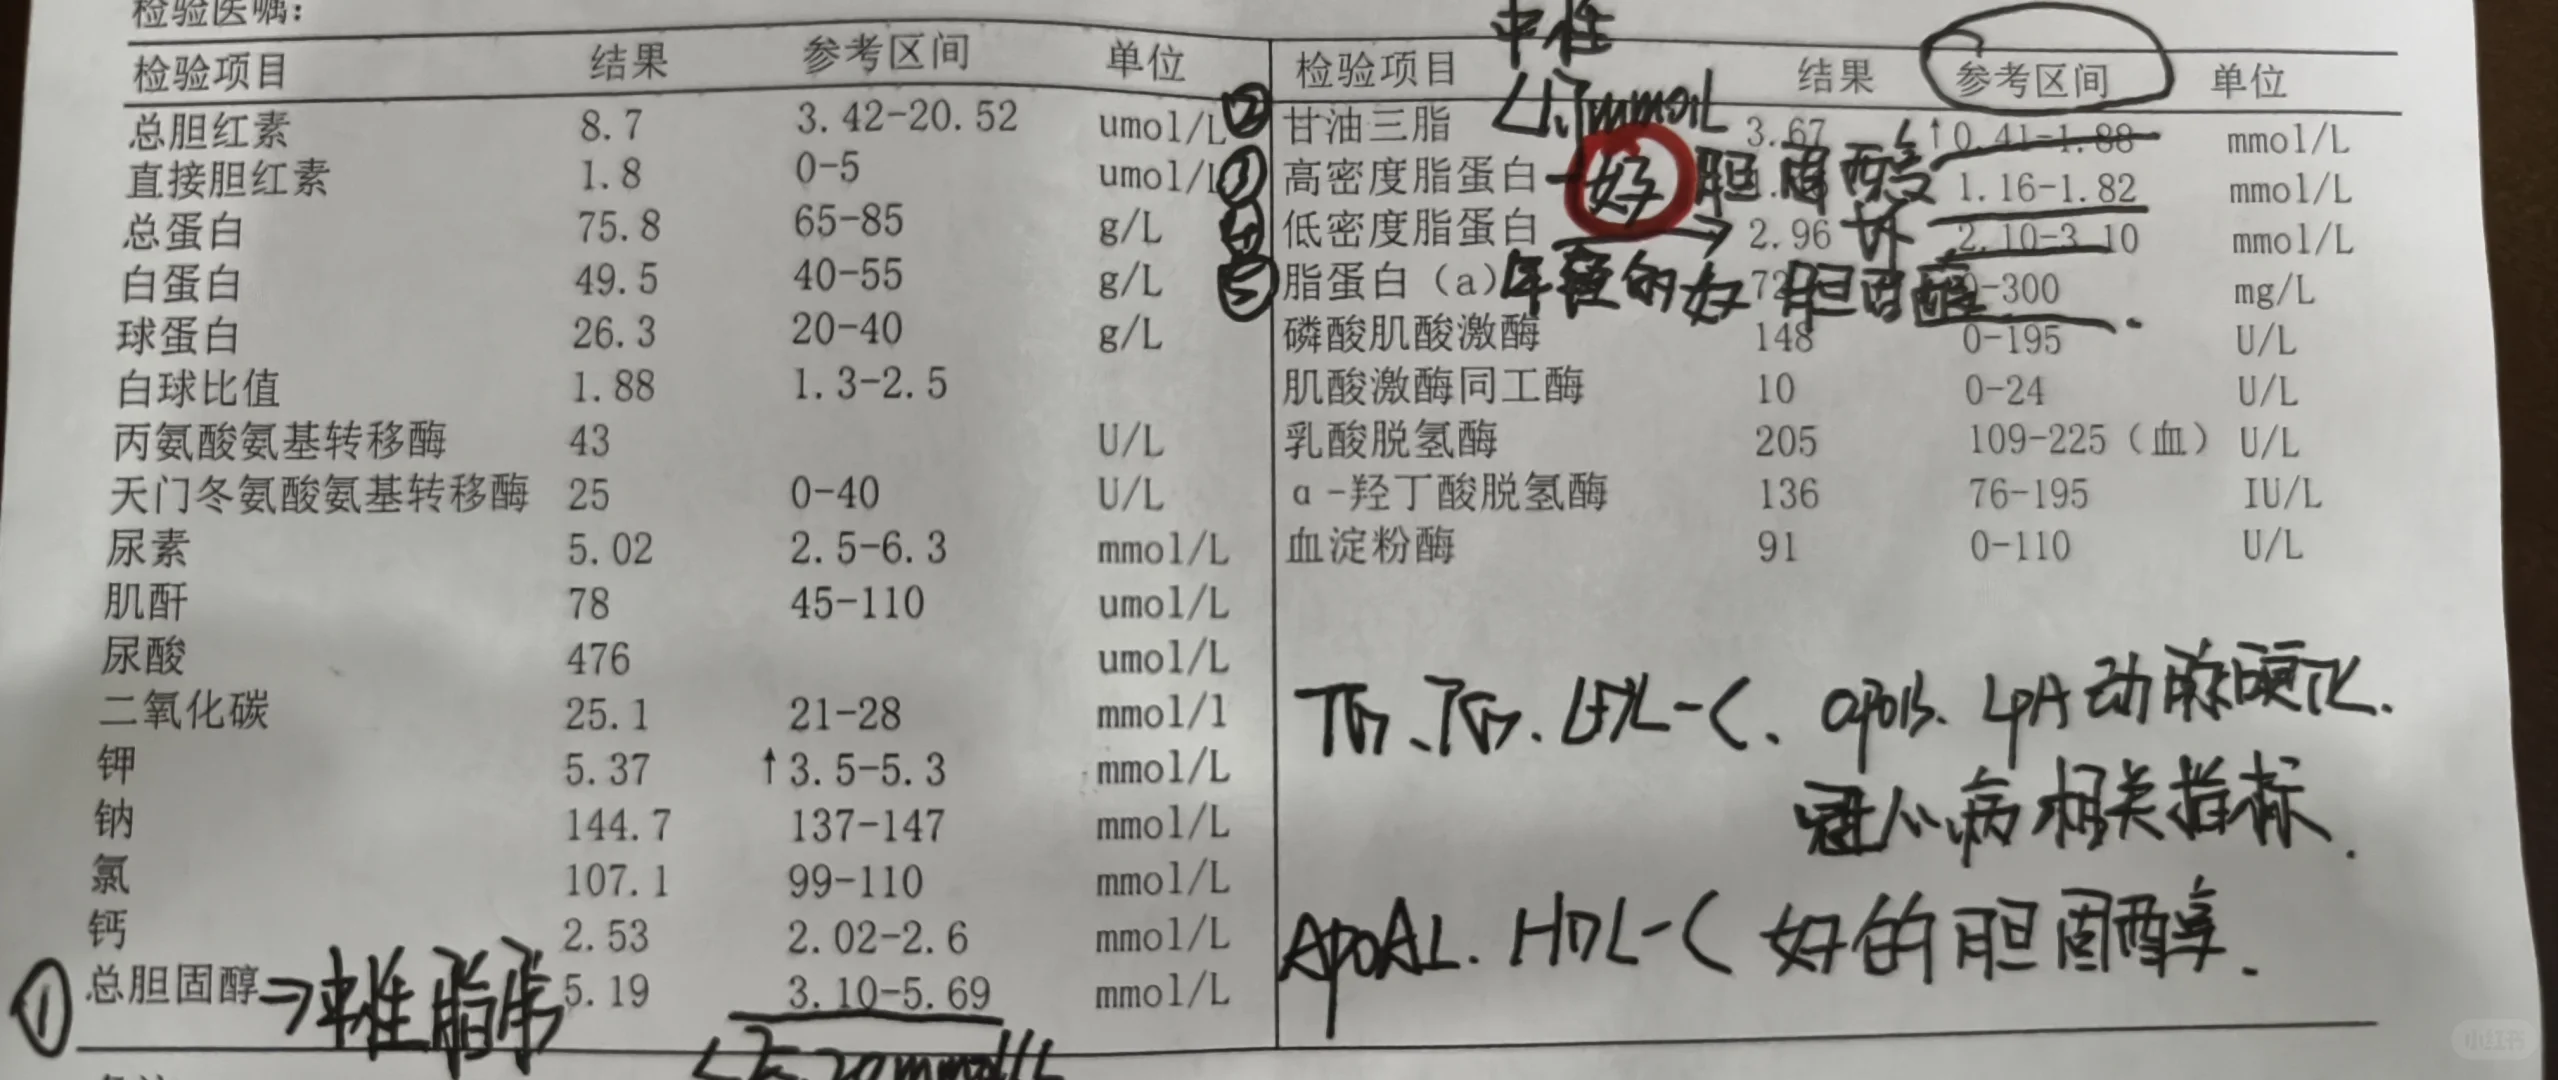 检验医嘱:
检验项目 结果 参考区间 单位
总胆红素 8.7 3.42-20.52 umol/L
直接胆红素 1.8 0-5 umol/L
总蛋白 75.8 65-85 g/L
白蛋白 49.5 40-55 g/L
球蛋白 26.3 20-40 g/L
白球比值 1.88 1.3-2.5
丙氨酸氨基转移酶 43 U/L
天门冬氨酸氨基转移酶 25 0-40 U/L
尿素 5.02 2.5-6.3 mmol/L
肌酐 78 45-110 umol/L
尿酸 476 umol/L
二氧化碳 25.1 21-28 mmol/l
钾 5.37 ↑3.5-5.3 mmol/L
钠 144.7 137-147 mmol/L
氯 107.1 99-110 mmol/L
钙 2.53 2.02-2.6 mmol/L
① 总胆固醇 ⇒中性脂肪 5.19 3.10-5.69 mmol/L
中性
检验项目 结果 参考区间 单位
② 甘油三脂 3.67 ↑0.41-1.88 mmol/L
③ 高密度脂蛋白 好胆固醇 1.16-1.82 mmol/L
④ 低密度脂蛋白 → 2.96 坏 2.10-3.10 mmol/L
⑤ 脂蛋白（a） 年轻的好胆固醇 -300 mg/L
磷酸肌酸激酶 148 0-195 U/L
肌酸激酶同工酶 10 0-24 U/L
乳酸脱氢酶 205 109-225（血） U/L
α-羟丁酸脱氢酶 136 76-195 IU/L
血淀粉酶 91 0-110 U/L
动脉硬化.
冠心病相关指标.
APOAL. HDL-C 好的胆固醇.
小红书